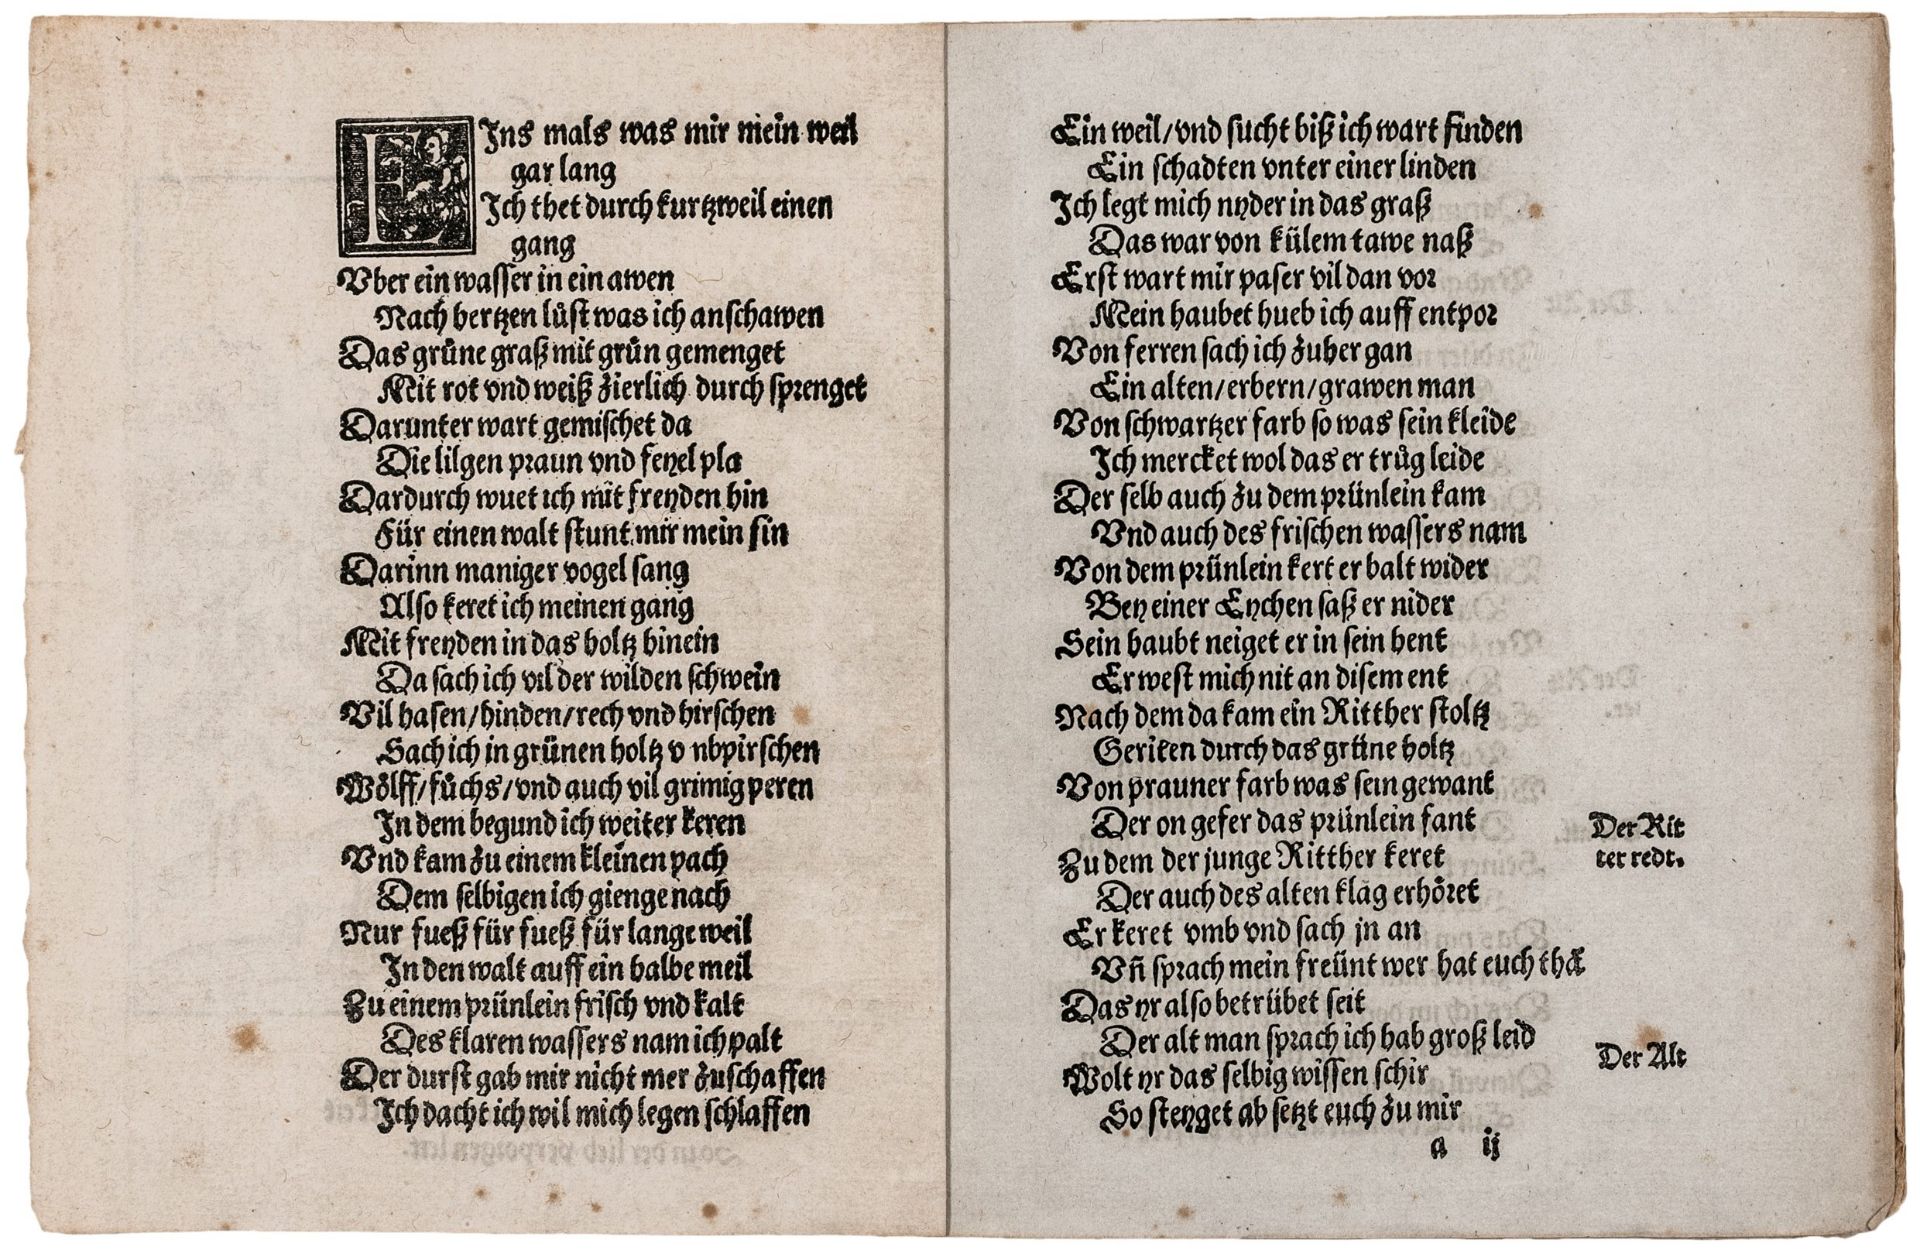 EIns mals was mir mein weil
gar lang
Ich thet durch kurtzweil einen
gang
Vber ein wasser in ein awen
Nach hertzen lůst was ich anschawen
Das grůne graß mit grůn gemenget
Mit rot vnd weiß zierlich durch sprenget
Darunter wart gemischet da
Die lilgen praun vnd feyel pla
Dardurch wuet ich mit freyden hin
Für einen walt stunt mir mein sin
Darinn maniger vogel sang
Also keret ich meinen gang
Mit freyden in das holtz hinein
Da sach ich vil der wilden schwein
Vil hasen/hinden/rech vnd hirschen
Sach ich in grünen holtz v nbpirschen
Wölff/fůchs/vnd auch vil grimig peren
In dem begund ich weiter keren
Vnd kam zu einem kleinen pach
Dem selbigen ich gienge nach
Nur fueß für fueß für lange weil
In den walt auff ein halbe meil
Zu einem prünlein frisch vnd kalt
Des klaren wassers nam ich palt
Der durst gab mir nicht mer zuschaffen
Ich dacht ich wil mich legen schlaffen
Ein weil/vnd sucht biß ich wart finden
Ein schadten vnter einer linden
Ich legt mich nyder in das graß
Das war von külem tawe naß
Erst wart mir paser vil dan vor
Mein haubet hueb ich auff entpor
Von ferren sach ich zuher gan
Ein alten/erbern/grawen man
Von schwartzer farb so was sein kleide
Ich mercket wol das er trůg leide
Der selb auch zu dem prünlein kam
Vnd auch des frischen wassers nam
Von dem prünlein kert er balt wider
Bey einer Eychen saß er nider
Sein haubt neiget er in sein hent
Er west mich nit an disem ent
Nach dem da kam ein Ritther stoltz
Geriten durch das grüne holtz
Von prauner farb was sein gewant
Der on gefer das prünlein fant
Zu dem der junge Ritther keret
Der Rit
ter redt.
Der auch des alten klag erhöret
Er keret vmb vnd sach jn an
Vñ sprach mein freünt wer hat euch thã
Das yr also betrübet seit
Der alt man sprach ich hab groß leid
Der Alt
Wolt yr das selbig wissen schir
So steyget ab setzt euch zu mir
a ij